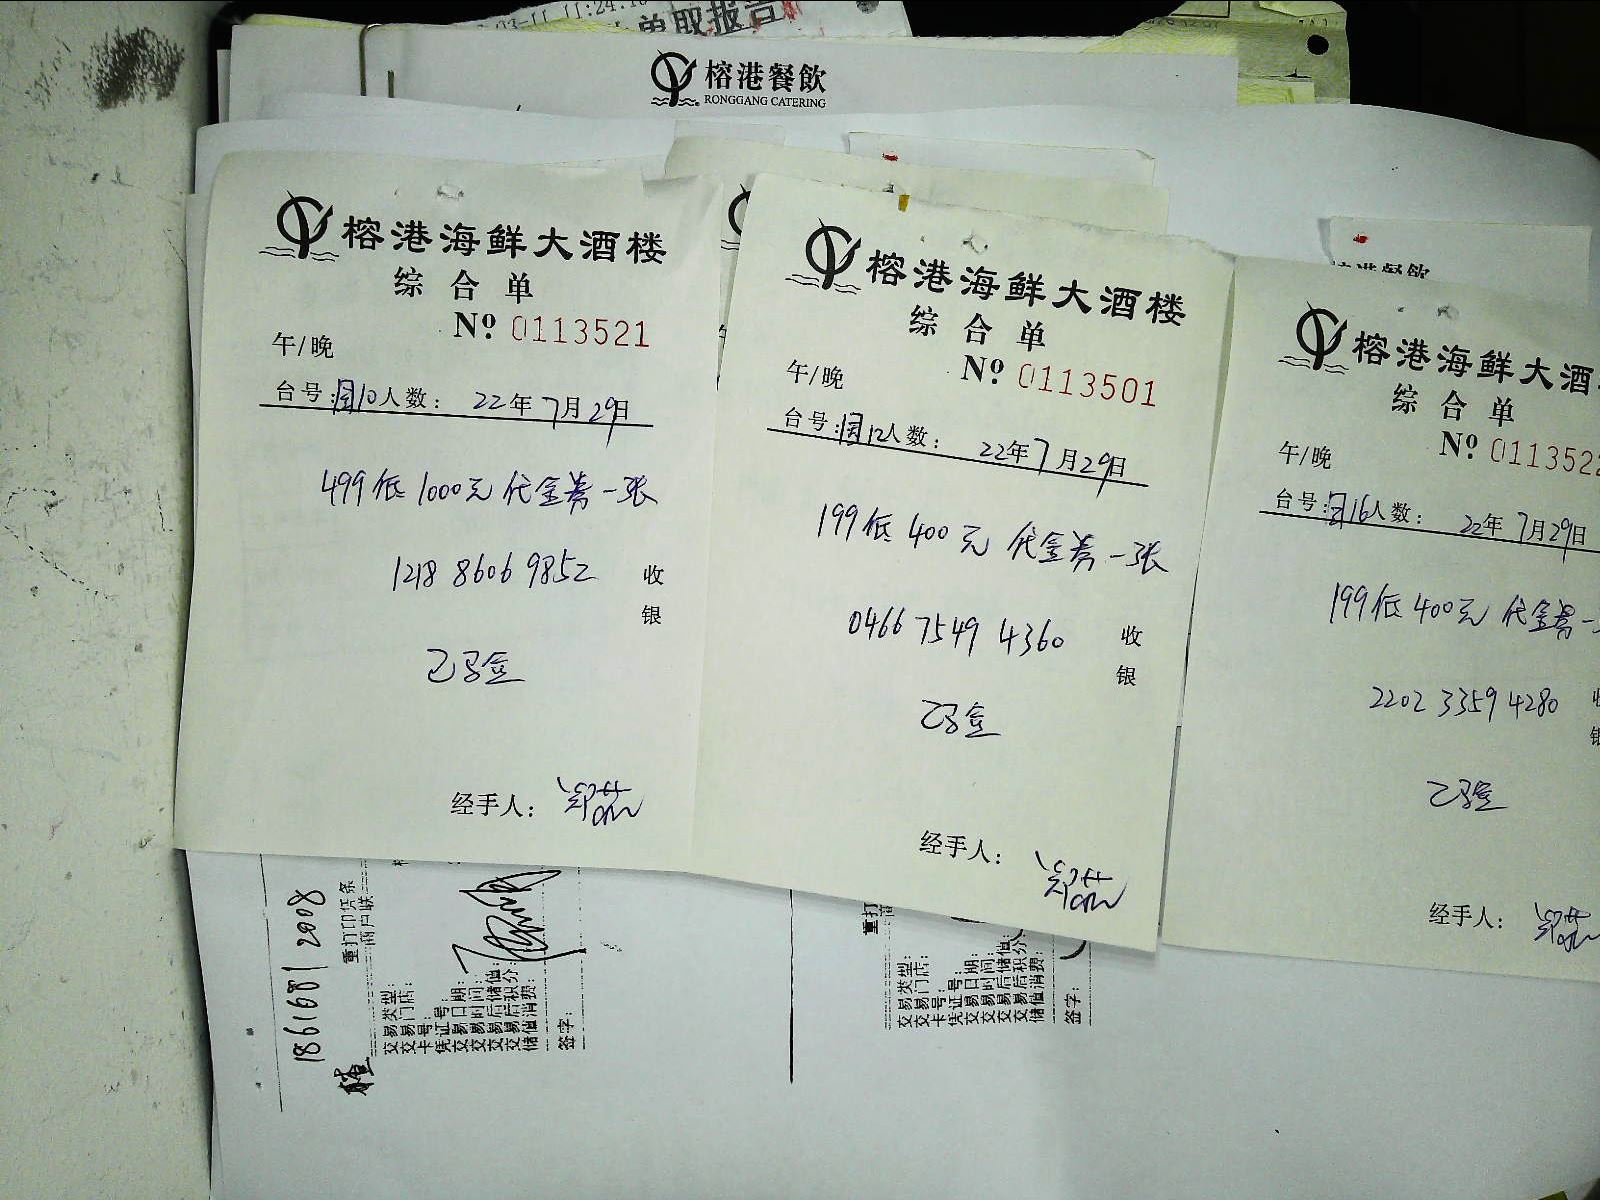 单取报告
榕港餐飲
RONGGANG CATERING
榕港海鲜大酒楼
综合单
№ 0113521
午/晚
台号: 10 人数: 22年7月29日
499低1000元代金券一张
1218 8606 9852
收
银
已验
经手人:
榕港海鲜大酒楼
综合单
№ 0113501
午/晚
台号: 12 人数: 22年7月29日
199低400元代金券一张
0466 7549 4360
收
银
已验
经手人:
榕港餐飲
榕港海鲜大酒
综合单
№ 011352
午/晚
台号: 16 人数: 22年7月29日
199低400元代金券一
2202 3359 4280
已验
经手人:
1861681 2008
重打印凭条
商户联
交易类型:
交易门店:
卡号:
凭证号:
交易日期:
交易时间:
交易后储值:
交易后积分:
储值消费:
签字:
交易类型:
交易门店:
卡号:
凭证号:
交易日期:
交易时间:
交易后储值:
交易后积分:
储值消费:
签字: